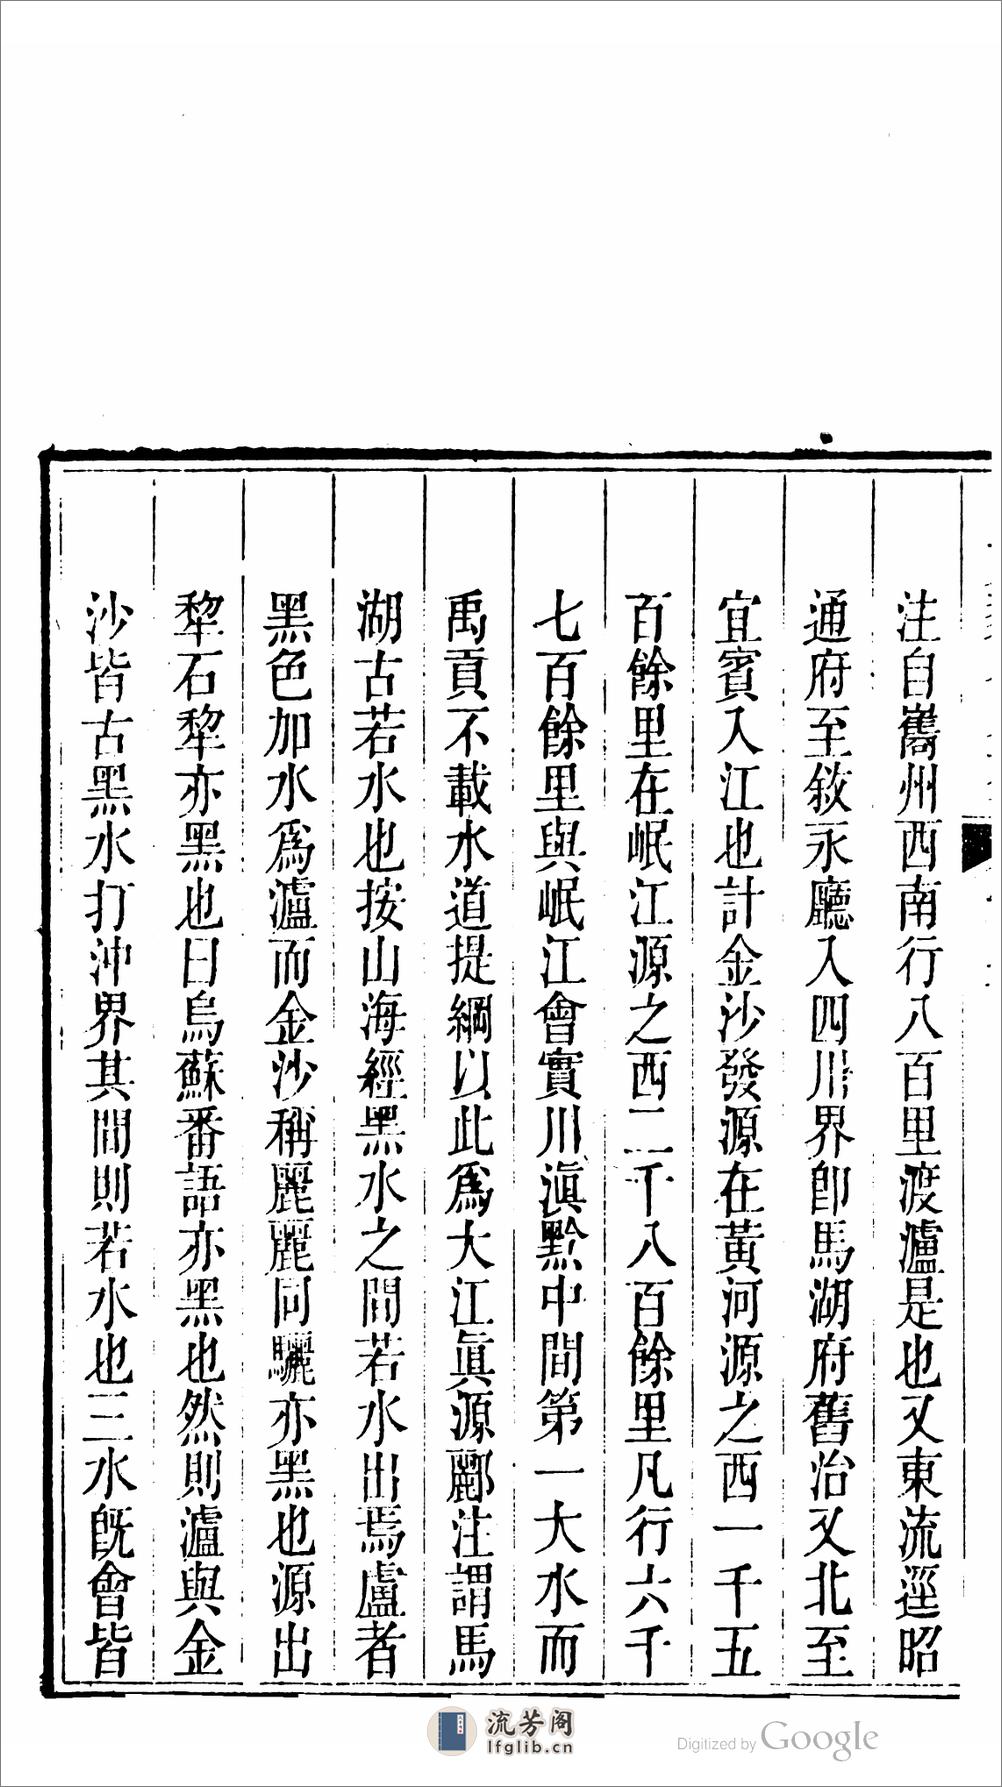 注自嶲州西南行八百里渡瀘是也又東流逕昭
通府至敘永廳入四川界卽馬湖府舊治又北至
宜賓入江也計金沙發源在黃河源之西一千五
百餘里在岷江源之西二千八百餘里凡行六千
七百餘里與岷江會實川滇黔中間第一大水而
禹貢不載水道提綱以此爲大江眞源酈注謂馬
湖古若水也按山海經黑水之間若水出焉盧者
黑色加水爲瀘而金沙稱麗麗同驪亦黑也源出
犂石犂亦黑也曰烏蘇番語亦黑也然則瀘與金
沙皆古黑水打沖界其間則若水也三水旣會皆
流芳阁
lfglib.cn
Digitized by Google